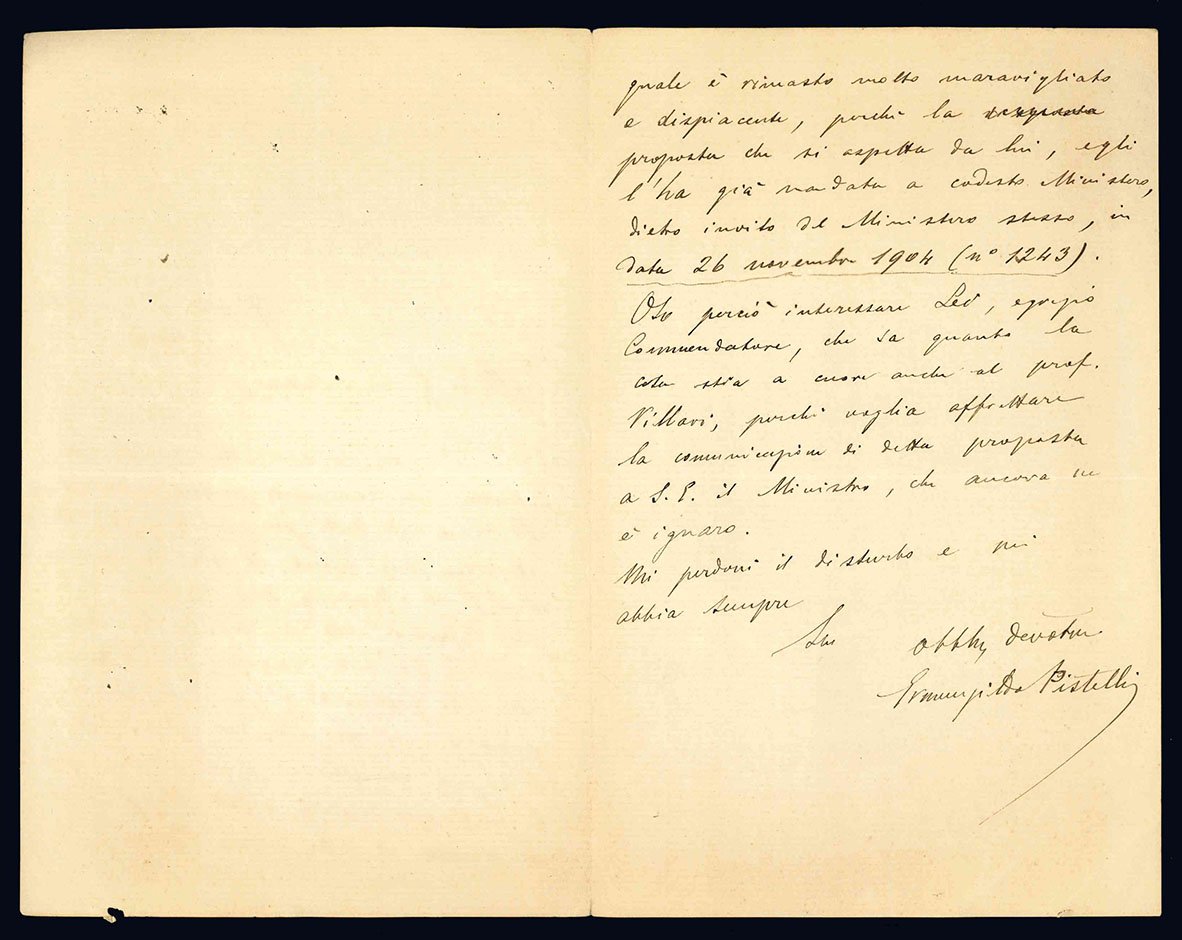 quale è rimasto molto maravigliato
e dispiacente, perchè la risposta
proposta che si aspetta da lui, egli
l'ha già mandata a codesto Ministero,
dietro invito del Ministero stesso, in
data 26 novembre 1904 (n° 1243).
Oso perciò interessare Lei, egregio
Commendatore, che sa quanto la
cosa stia a cuore anche al prof.
Villari, perchè voglia affrettare
la comunicazione di detta proposta
a S. E. il Ministro, che ancora ne
è ignaro.
Mi perdoni il disturbo e mi
abbia sempre
Suo obbl. devotm.
Ermenegildo Pistelli